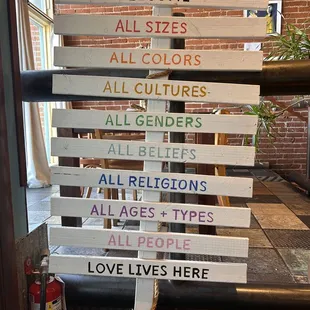 ALL SIZES
ALL COLORS
ALL CULTURES
ALL GENDERS
ALL BELIEFS
ALL RELIGIONS
ALL AGES + TYPES
ALL PEOPLE
LOVE LIVES HERE